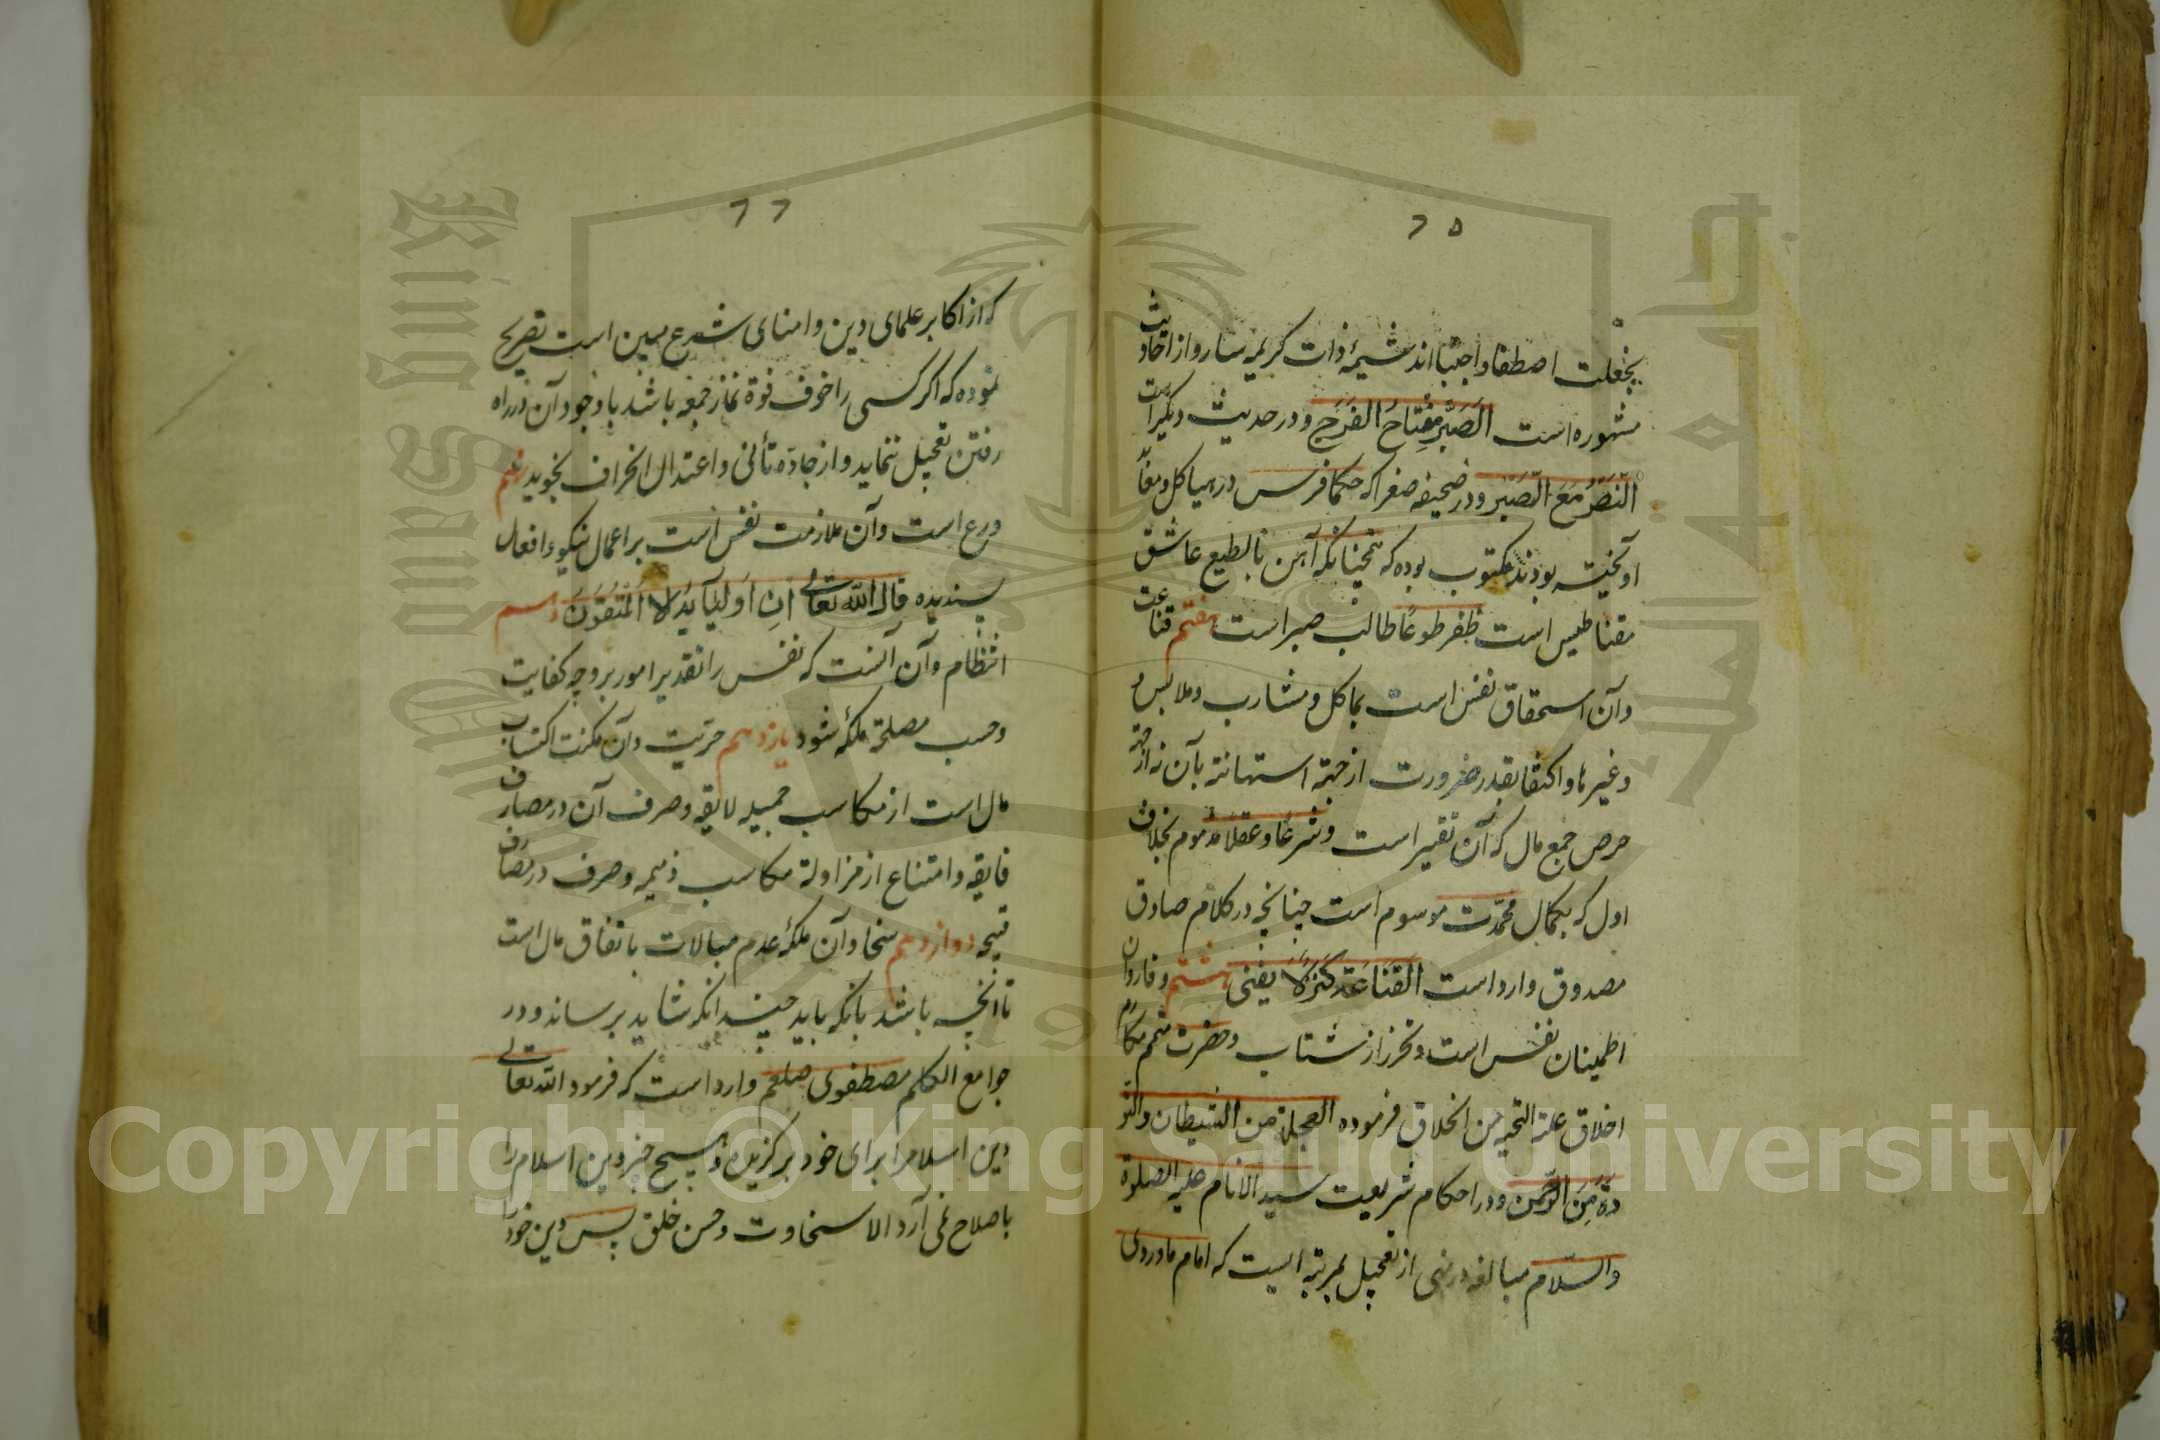 ٦٥
بخعلت اصطفا واجتبا اند شیمهٔ ذات کریمه سازد و از احادیث
مشهوره است الصبر مفتاح الفرج و در حدیث دیگر است
النصر مع الصبر و در صحیفه صغرا که حکما فرس در هیاکل و معابد
آویخته بودند مکتوب بوده که همچنانکه آهن بالطبع عاشق
مقناطیس است ظفر طوعا طالب صبر است هفتم قناعت
وآن استحقاق نفس است بماکل و مشارب و ملابس و
وغیرها و اکتفا بقدر ضرورت از جهة استهانة بآن نه از جهة
حرص جمع مال که آن تقتیر است و شرعا و عقلا مذموم بخلاف
اول که بکمال محمدت موسوم است چنانچه در کلام صادق
مصدوق وارد است القناعة کنز لا یفنی هشتم وقار و آن
اطمینان نفس است و تحرز از شتاب و حضرت متمم مکارم
اخلاق علیه التحیه من الخلاق فرموده العجلة من الشیطان والتؤ
دة من الرحمن و در احکام شریعت سید الانام علیه الصلوة
والسلام مبالغه در نهی از تعجیل بمرتبه ایست که امام ماوردی
٦٦
که از اکابر علمای دین و امنای شرع مبین است تصریح
نموده که اکر کسی را خوف فوة نماز جمعه باشد با وجود آن در راه
رفتن تعجیل ننماید و از جادهٔ تأنی و اعتدال انحراف نجوید نهم
ورع است و آن ملازمت نفس است بر اعمال نیکو و افعال
پسندیده قال الله تعالی ان اولیآیه الا المتقون دهم
انتظام و آن آنست که نفس را تقدیر امور بر وجه کفایت
وحسب مصلحة ملکه شود یازدهم حریت و آن مکنت اکتساب
مال است از مکاسب جمیله لایقه و صرف آن در مصارف
فایقه و امتناع از مزاولة مکاسب ذمیمه و صرف در مصارف
قبیحه دوازدهم سخا و آن ملکهٔ عدم مبالات بانفاق مال است
تا آنچه باشد بانکه باید چندانکه شاید برساند و در
جوامع الکلم مصطفوی صلعم وارد است که فرمود الله تعالی
دین اسلام را برای خود برکزیده و هیچ چیز دین اسلام را
باصلاح نمی آرد الا سخاوت و حسن خلق پس دین خود را
Copyright © King Saud University
King Saud University
جامعة الملك سعود
1957